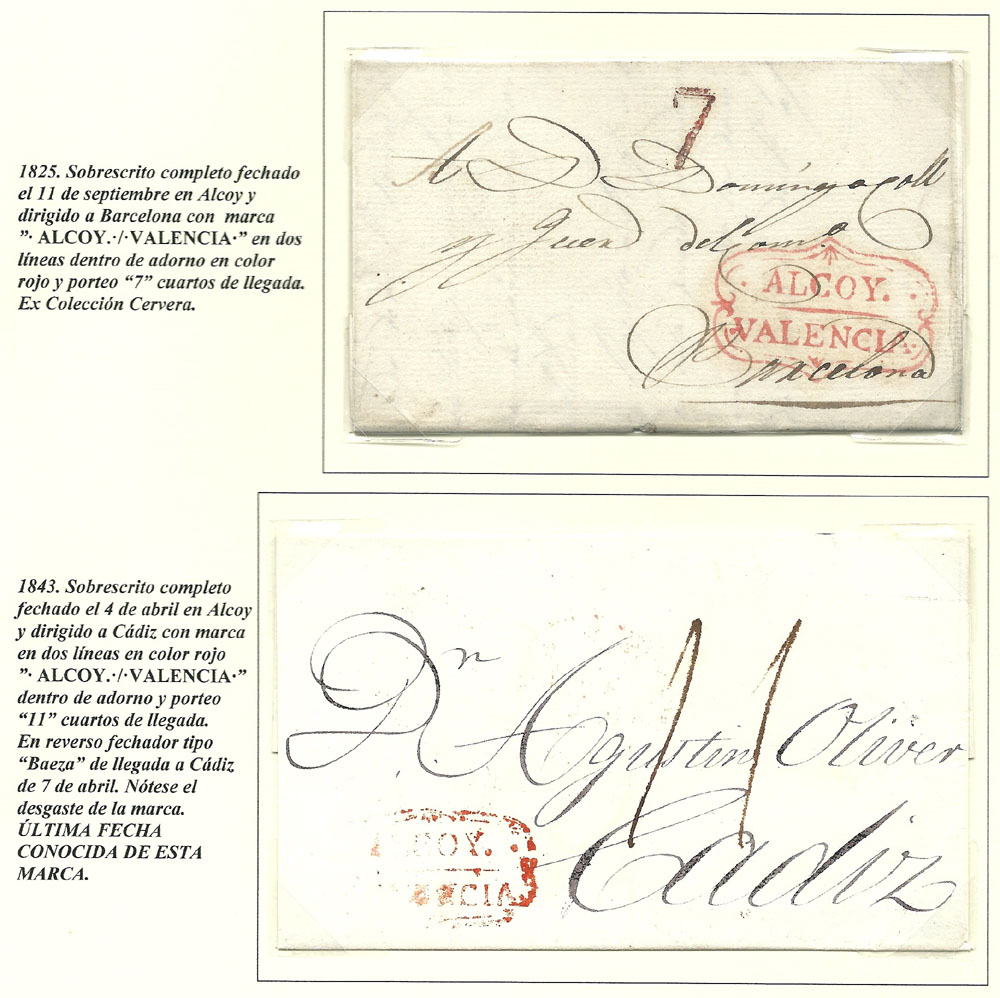 1825. Sobrescrito completo fechado
el 11 de septiembre en Alcoy y
dirigido a Barcelona con marca
”· ALCOY.·/·VALENCIA·” en dos
líneas dentro de adorno en color
rojo y porteo “7” cuartos de llegada.
Ex Colección Cervera.
7
A D Domingo Coll
y
ALCOY.
VALENCIA
Barcelona
1843. Sobrescrito completo
fechado el 4 de abril en Alcoy
y dirigido a Cádiz con marca
en dos líneas en color rojo
”· ALCOY.·/·VALENCIA·”
dentro de adorno y porteo
“11” cuartos de llegada.
En reverso fechador tipo
“Baeza” de llegada a Cádiz
de 7 de abril. Nótese el
desgaste de la marca.
ÚLTIMA FECHA
CONOCIDA DE ESTA
MARCA.
11
Dn Agustin Oliver
Cadiz
ALCOY.
ENCIA